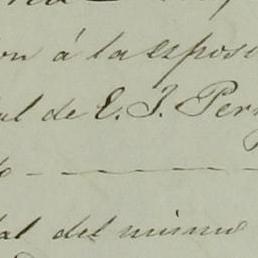 on á la esposi
al de E. J. Per
o - — — —
al del mismo